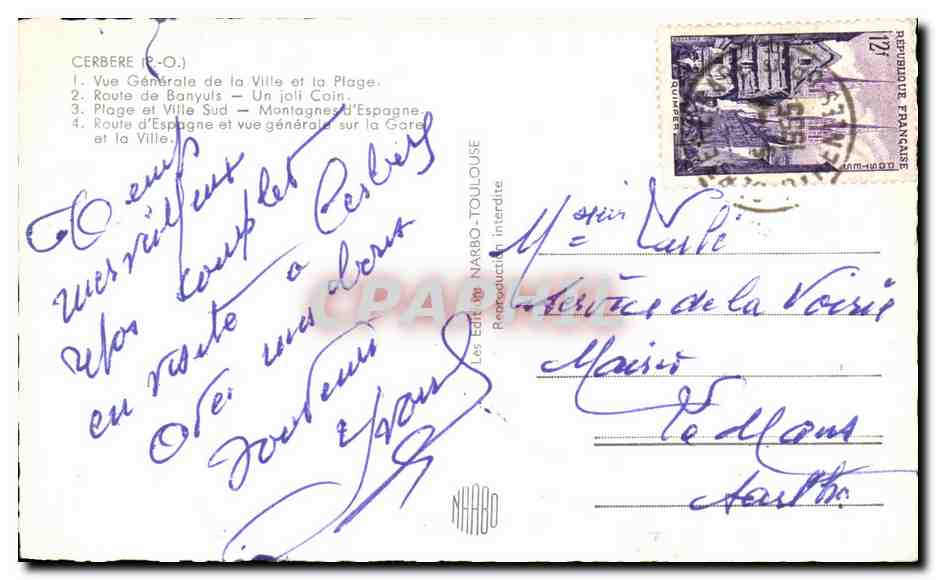 CERBERE (P.-O.)
1. Vue Générale de la Ville et la Plage.
2. Route de Banyuls — Un joli Coin.
3. Plage et Ville Sud — Montagnes d'Espagne.
4. Route d'Espagne et vue générale sur la Gare
et la Ville.
Temps
merveilleux
Repos complet
en visite à Cerbère
souvenir
Yvonne
Les Editions NARBO-TOULOUSE
Reproduction interdite
NARBO
12f
RÉPUBLIQUE FRANÇAISE
POSTES
QUIMPER
1955
CPAPHIL
Monsieur
Service de la Voirie
Mairie
Le Mans
Sarthe